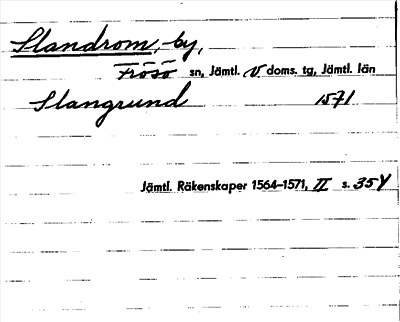 Slandrom, by,
Frösö sn, Jämtl. V doms. tg, Jämtl. län
Slangrund 1571
Jämtl. Räkenskaper 1564–1571, II s. 354